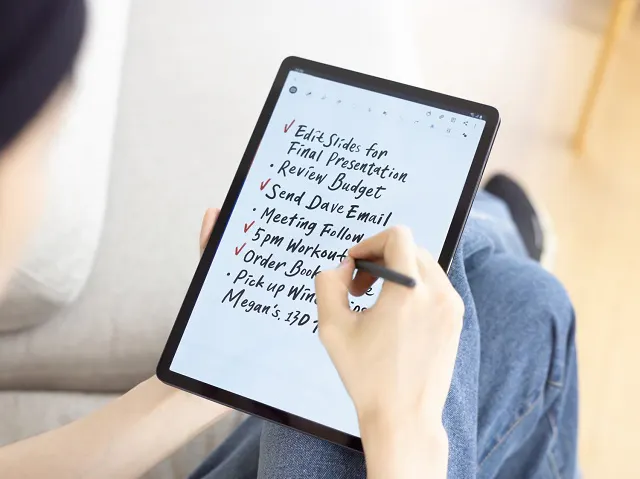 ✓ Edit Slides for
Final Presentation
• Review Budget
✓ Send Dave Email
• Meeting Follow
✓ 5pm Workout
✓ Order Book
• Pick up
Megan's. 13D